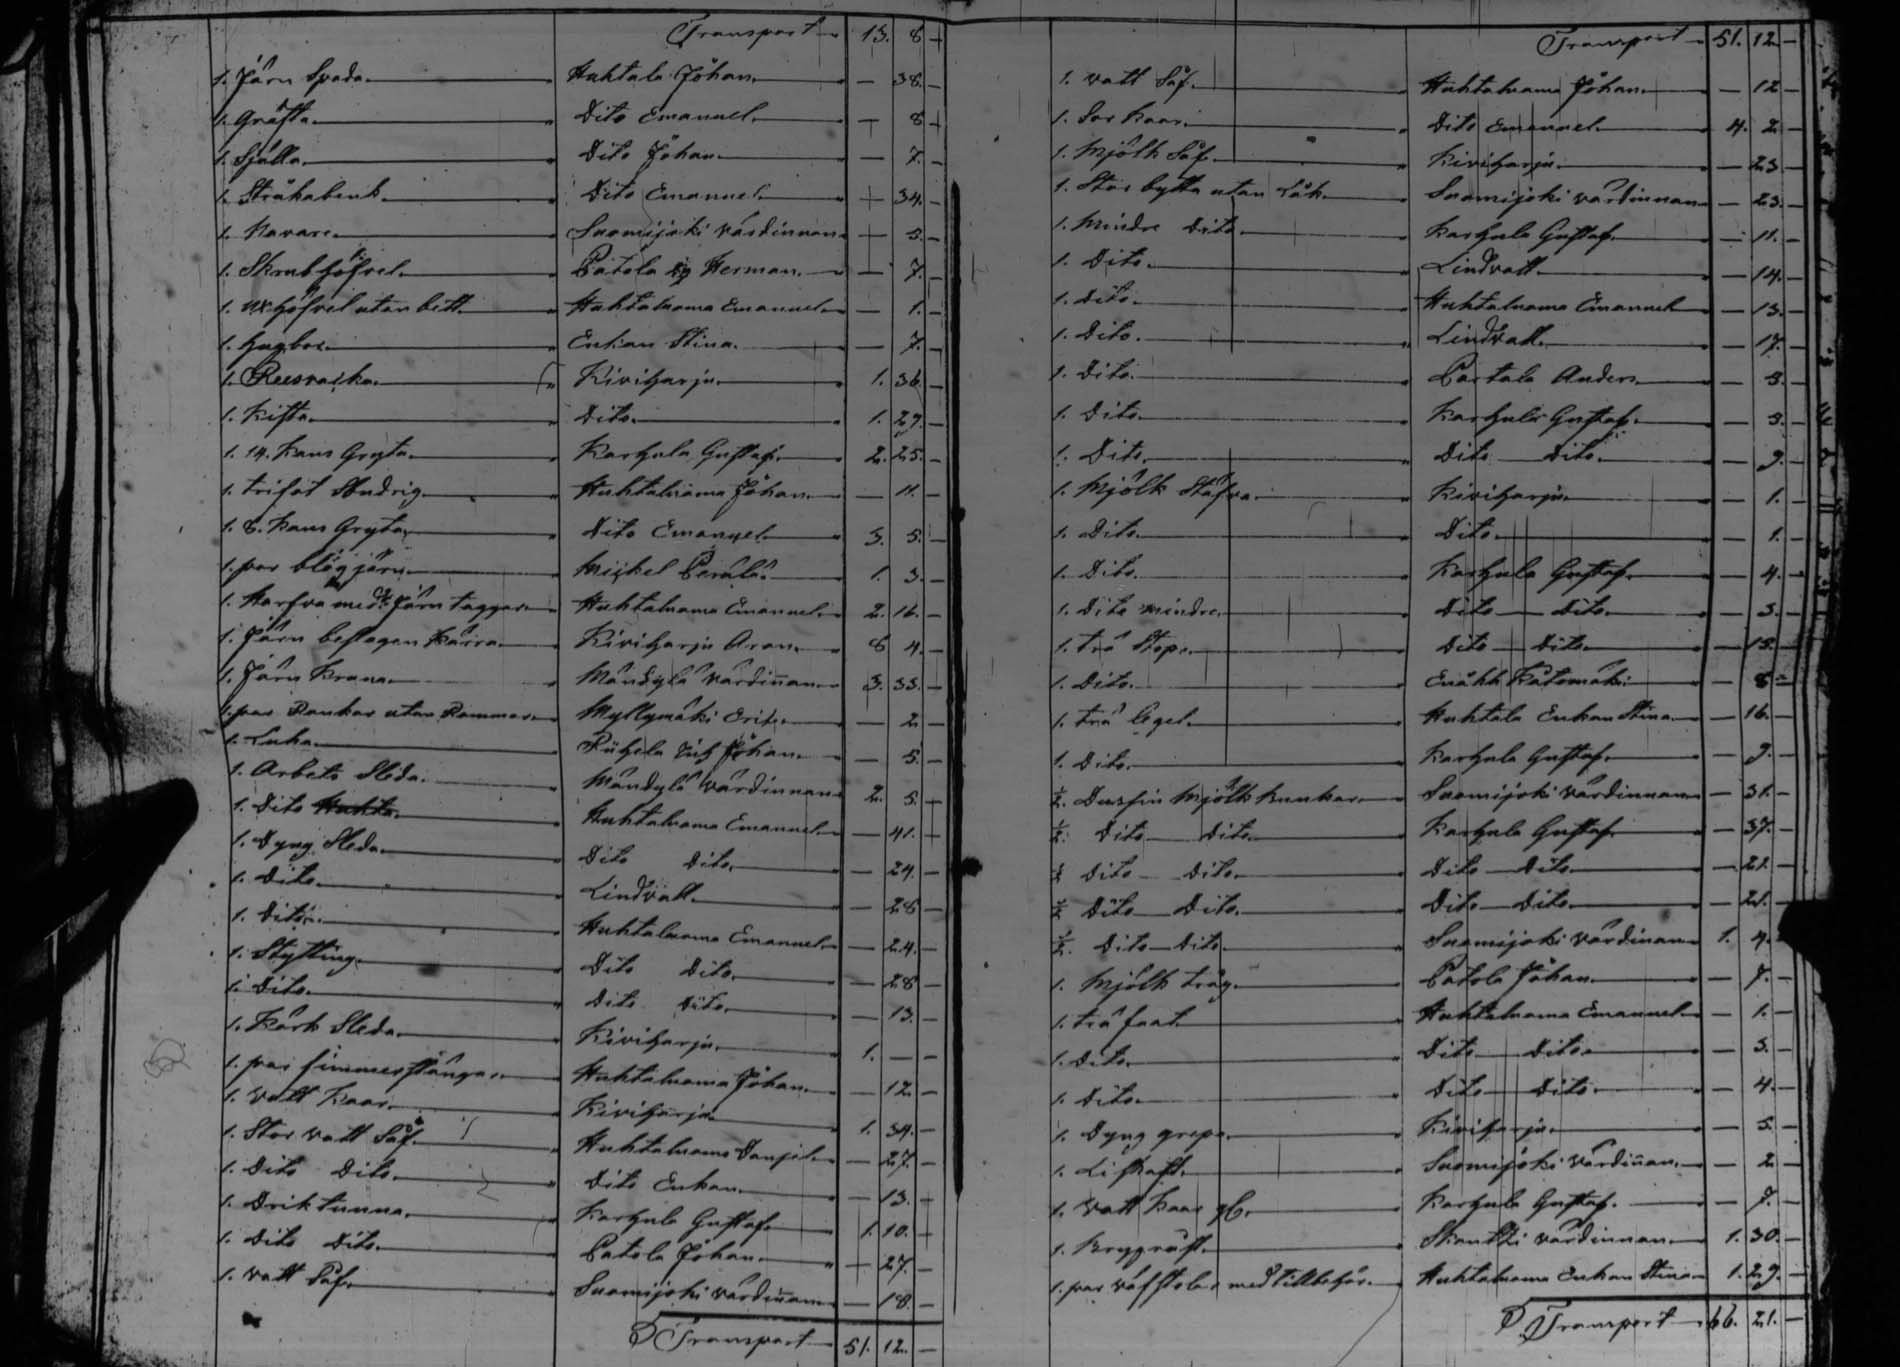 Transport 13. 8 -
1. Järn Spada. Huhtala Johan. - 38. -
1. Gräfta. Dito Emanuel. - 8 -
1. Sjålla. Dito Johan. - 7. -
1. Stråkabenk. Dito Emanuel. - 34. -
1. Navare. Suomijoki värdinnan - 3. -
1. Skrubhöfvel. Patola Herman. - 7. -
1. höfvel utan bett. Huhtaluoma Emanuel - 1. -
1. Hugbox. Enkan Stina. - 7. -
1. Reesvaika. Kiviharju. 1. 36. -
1. Kista. Dito. 1. 29. -
1. 14. Kans Gryta. Karhula Gustaf. 2. 25. -
1. trifot Andrig. Huhtaluoma Johan. - 11. -
1. 8. Kans Gryta. Dito Emanuel. 3. 5. -
1. par plogjärn. Mickel Perälä. 1. 3. -
1. Harfva med Järn taggar. Huhtaluoma Emanuel. 2. 16. -
1. Järn beslagen Kärra. Kiviharju Aron. 8 4. -
1. Järn Krana. Mändylä Värdinnan. 3. 33. -
1. par Rankor utan Rammar. Myllymäki Erik. - 2 -
1. Luka. Johan. - 5. -
1. Arbets Sleda. Mändylä Värdinnan 2. 5. -
1. Dito Huhtaluoma Emanuel. - 41. -
1. Dyng Sleda. Dito Dito. - 24. -
1. Dito. Lindvall. - 28 -
1. Dito. Huhtaluoma Emanuel. - 24. -
1. Stytting. Dito Dito. - 28 -
1. Dito. Dito Dito. - 13. -
1. Kärk Sleda. Kiviharju. 1. - -
1. par fimmerstänger. Huhtaluoma Johan. - 12. -
1. Vatt Kaar. Kiviharju 1. 34. -
1. Stor vatt Så. Huhtaluoma Danjel. - 27. -
1. Dito Dito. Dito Enkan. - 13. -
1. Driktunna. Karhula Gustaf. 1. 10. -
1. Dito Dito. Patola Johan. - 27. -
1. Vatt Så. Suomijoki värdinnan - 18. -
Transport 51. 12. -
Transport 51. 12. -
1. vatt Så. Huhtaluoma Johan. - 12 -
1. Sor Kaar. Dito Emanuel. 4. 2. -
1. Mjölk Så. Kiviharju. - 23 -
1. Stor bytta utan Låk. Suomijoki värdinnan - 23. -
1. Mindre Dito. Karhula Gustaf. - 11. -
1. Dito. Lindvall. - 14. -
1. Dito. Huhtaluoma Emanuel - 13. -
1. Dito. Lindvall. - 17. -
1. Dito. Portala Anders. - 3. -
1. Dito. Karhula Gustaf. - 3. -
1. Dito. Dito Dito. - 9. -
1. Mjölk Stäfva. Kiviharju. - 1. -
1. Dito. Dito. - 1. -
1. Dito. Karhula Gustaf. - 4. -
1. Dito mindre. Dito Dito. - 3. -
1. trä Stop. Dito Dito. - 15. -
1. Dito. Enåkk Katomäki - 8 -
1. trä legel. Huhtala Enkan Stina. - 16. -
1. Dito. Karhula Gustaf. - 9. -
½. Dussin Mjölk bunkar. Suomijoki Värdinnan - 31. -
½. Dito Dito. Karhula Gustaf - 37. -
½ Dito Dito. Dito Dito. - 21. -
½ Dito Dito. Dito Dito. - 21. -
½ Dito Dito. Suomijoki värdinnan 1. 4. -
1. Mjölk tråg. Patola Johan. - 7. -
1. trä faat. Huhtaluoma Emanuel. - 1. -
1. Dito. Dito Dito. - 3. -
1. Dito. Dito Dito. - 4. -
1. Dyng grepe. Kiviharju. - 5. -
1. Liskaft. Suomijoki Värdinnan. - 2 -
1. Vatt Kaar gl. Karhula Gustaf. - 7. -
1. Värdinnan. 1. 30. -
1. par väfstolar med tillbehör. Huhtaluoma Enkan Stina 1. 29. -
Transport 66. 21. -